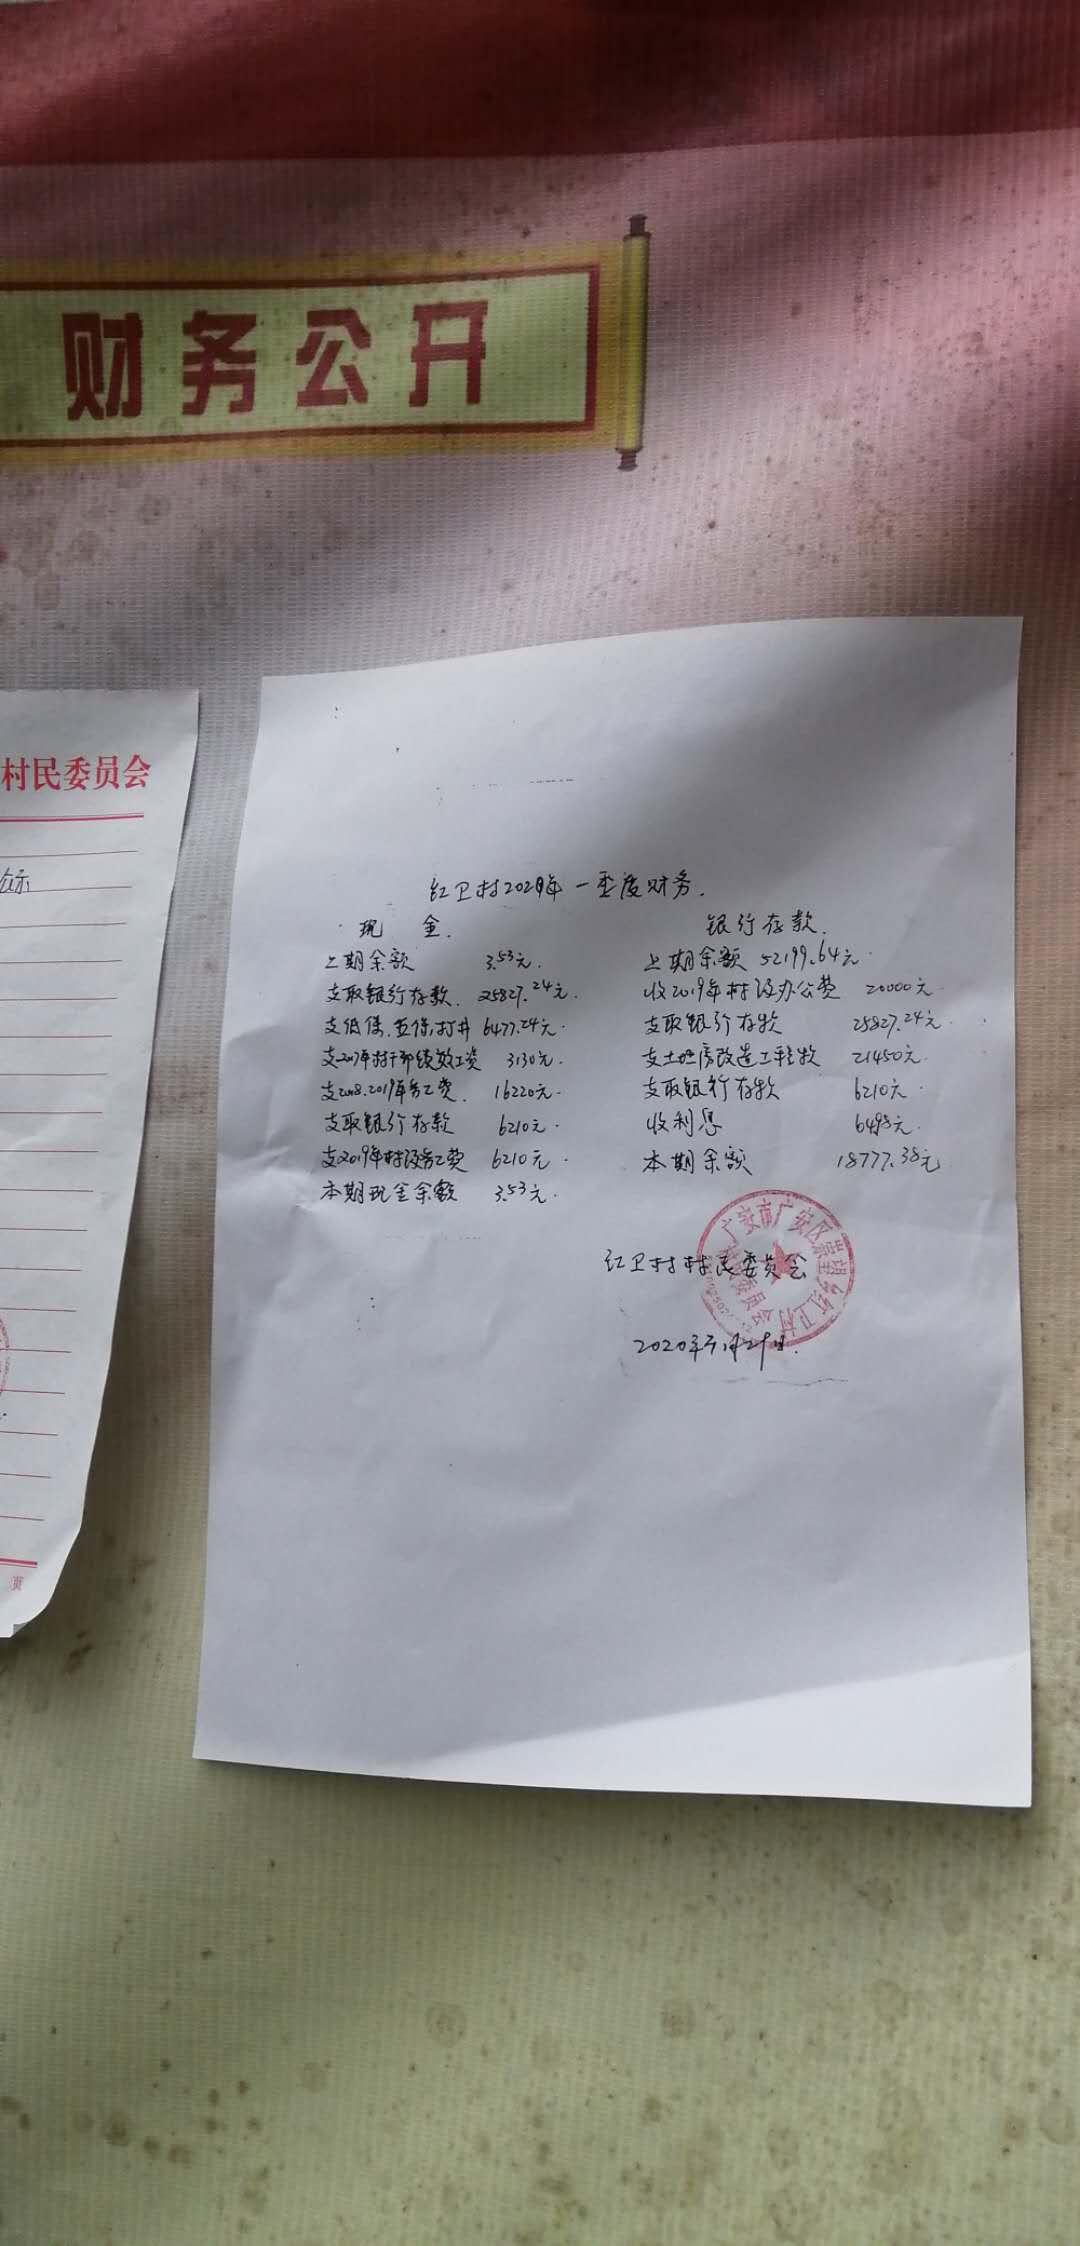 财务公开
村民委员会
公示
页
红卫村2020年一季度财务.
现 金.
上期余额 3.53元.
支取银行存款. 25827.24元.
支低保.医保.打井 6477.24元.
支2017年村干部绩效工资 3130元.
支2018.2019年务工费. 16220元.
支取银行存款 6210元.
支2019年村级务工费 6210元.
本期现金余额 3.53元.
银行存款.
上期余额 52199.64元.
收2019年村级办公费 20000元.
支取银行存款 25827.24元.
支土地房改造工程款 21450元.
支取银行存款 6210元.
收利息 64.98元.
本期余额 18777.38元
红卫村村民委员会
广安市广安区 红卫村
村民委员会
2020年3月29日.